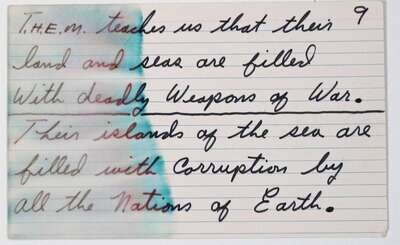 T.H.E.M. teaches us that their 9
land and seas are filled
With deadly Weapons of War.
Their islands of the sea are
filled with Corruption by
all the Nations of Earth.